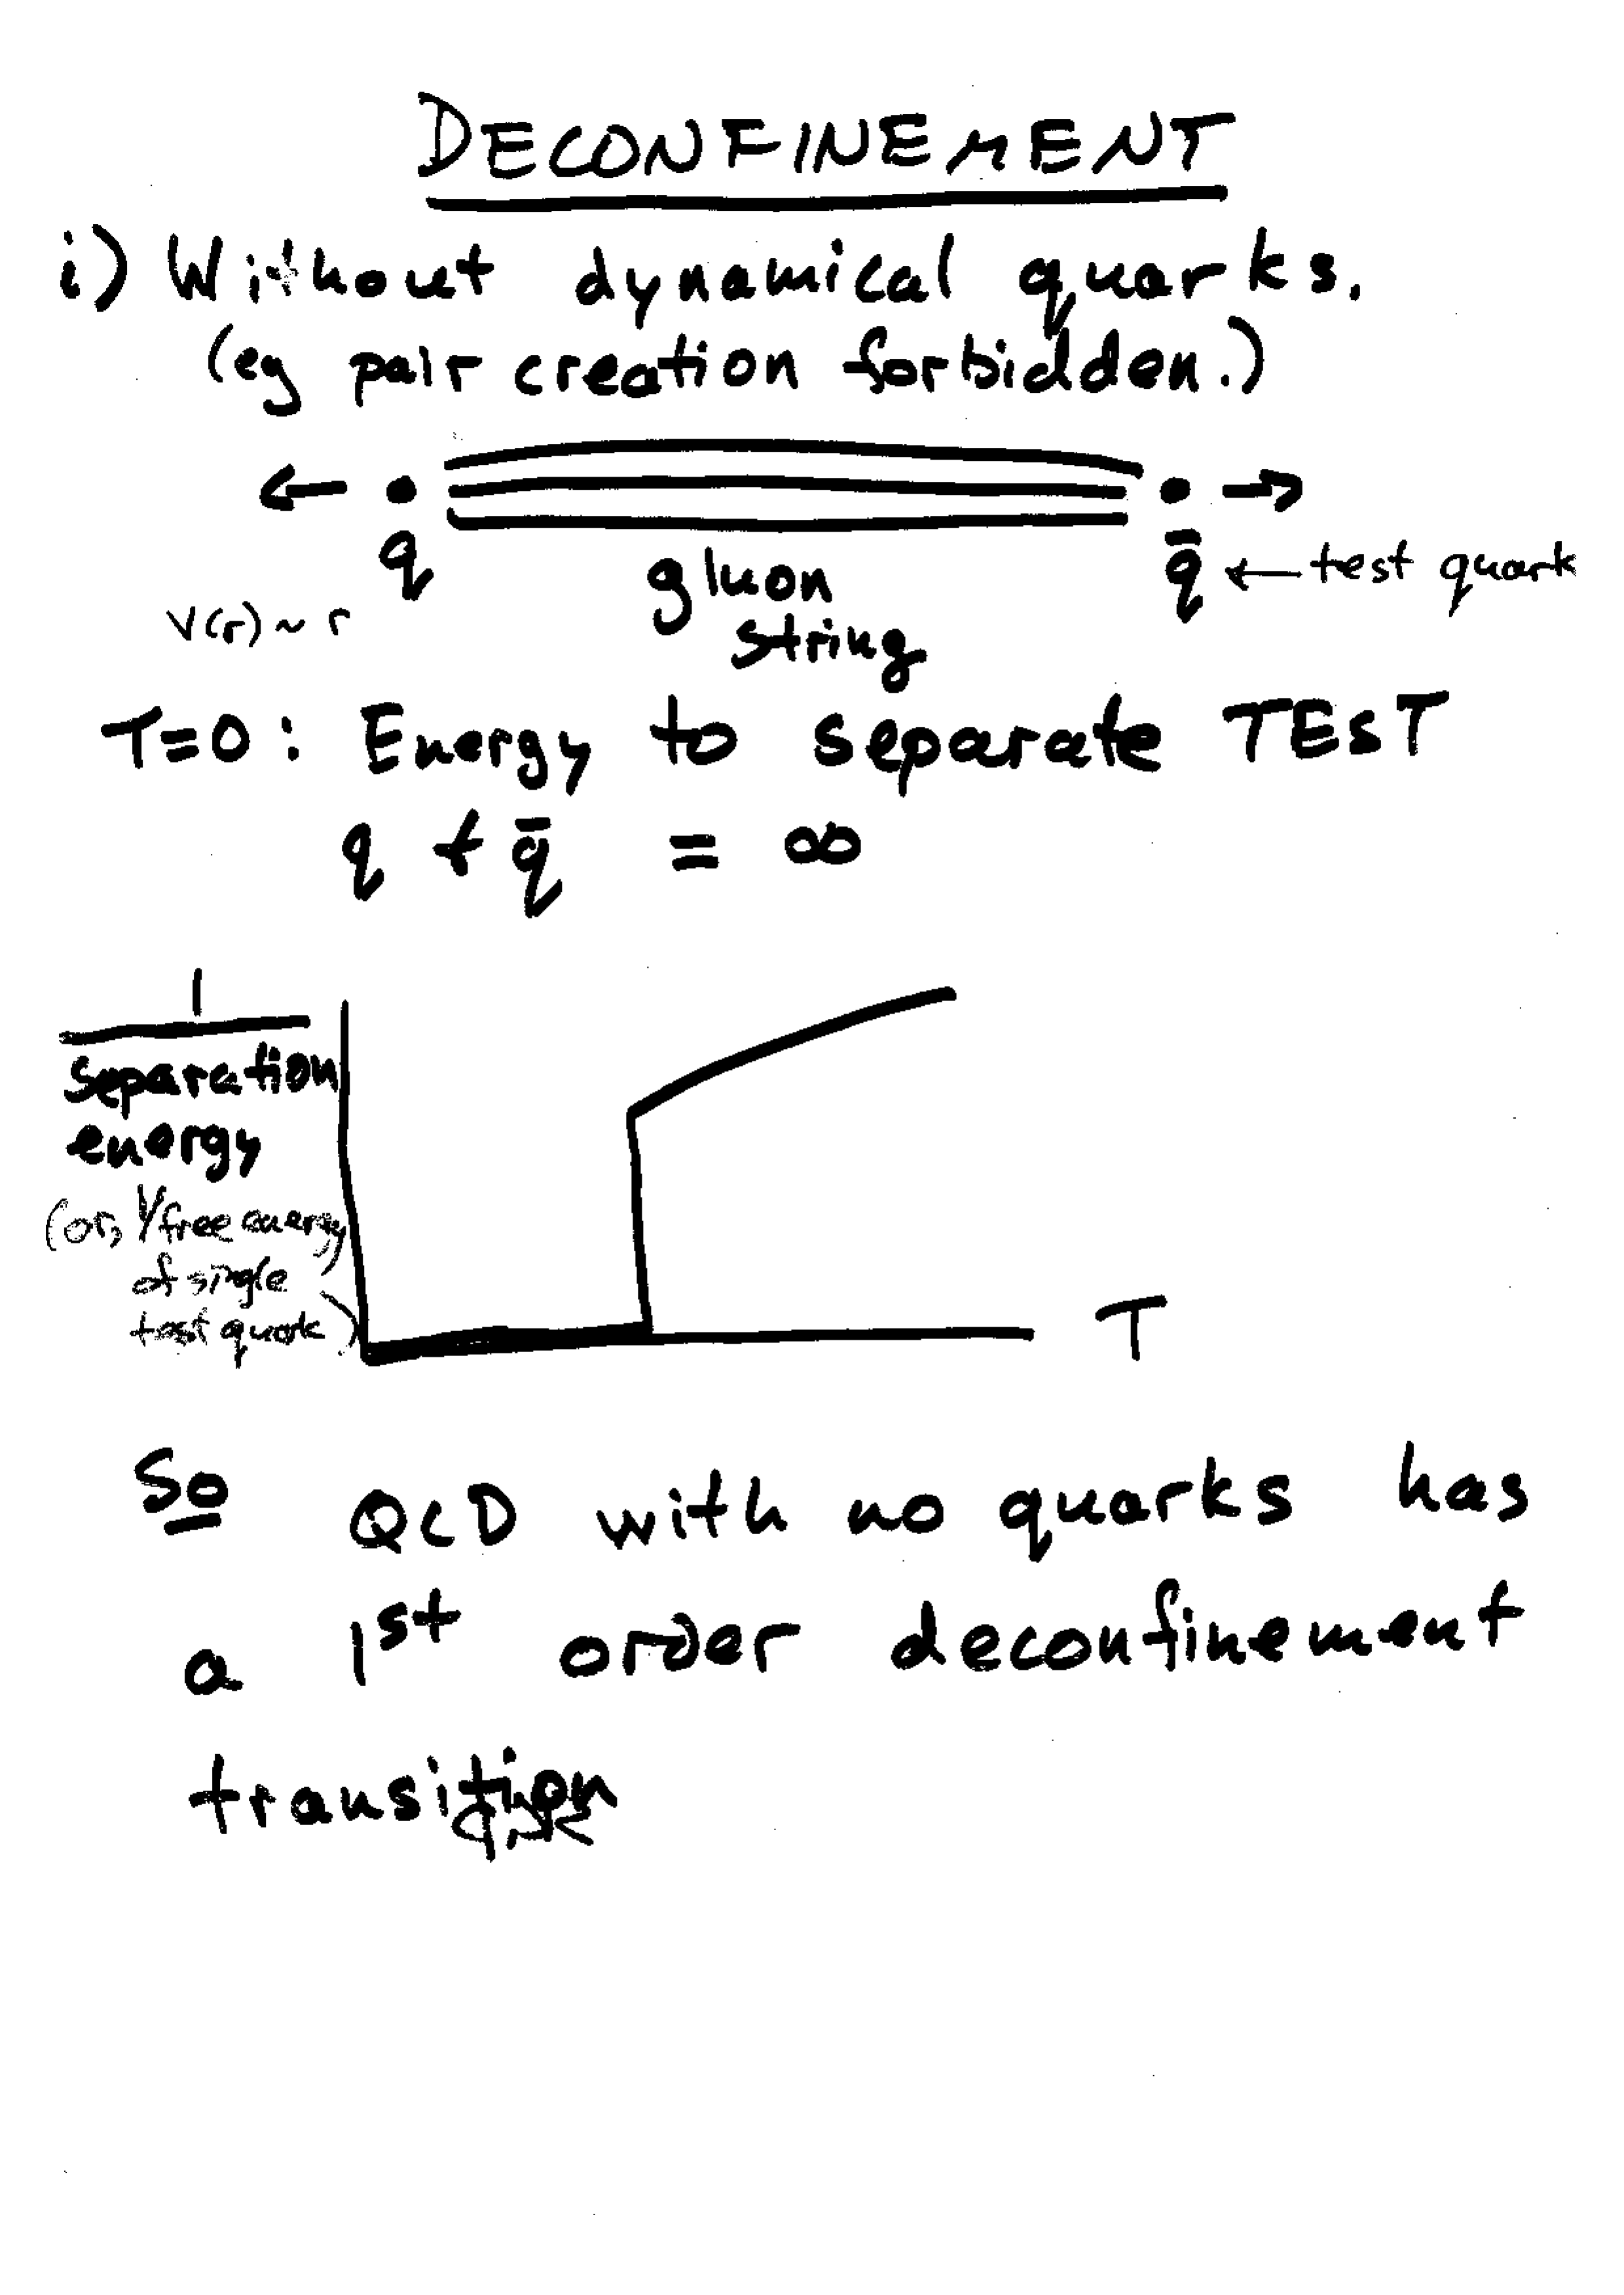 DECONFINEMENT
i) Without dynamical quarks.
(eg pair creation forbidden.)
q gluon q̄ ← test quark
V(r) ~ r string
T=0: Energy to separate TEST
q + q̄ = ∞
1
separation
energy
(or, 1/free energy
of single
test quark)
T
So QCD with no quarks has
a 1st order deconfinement
transition